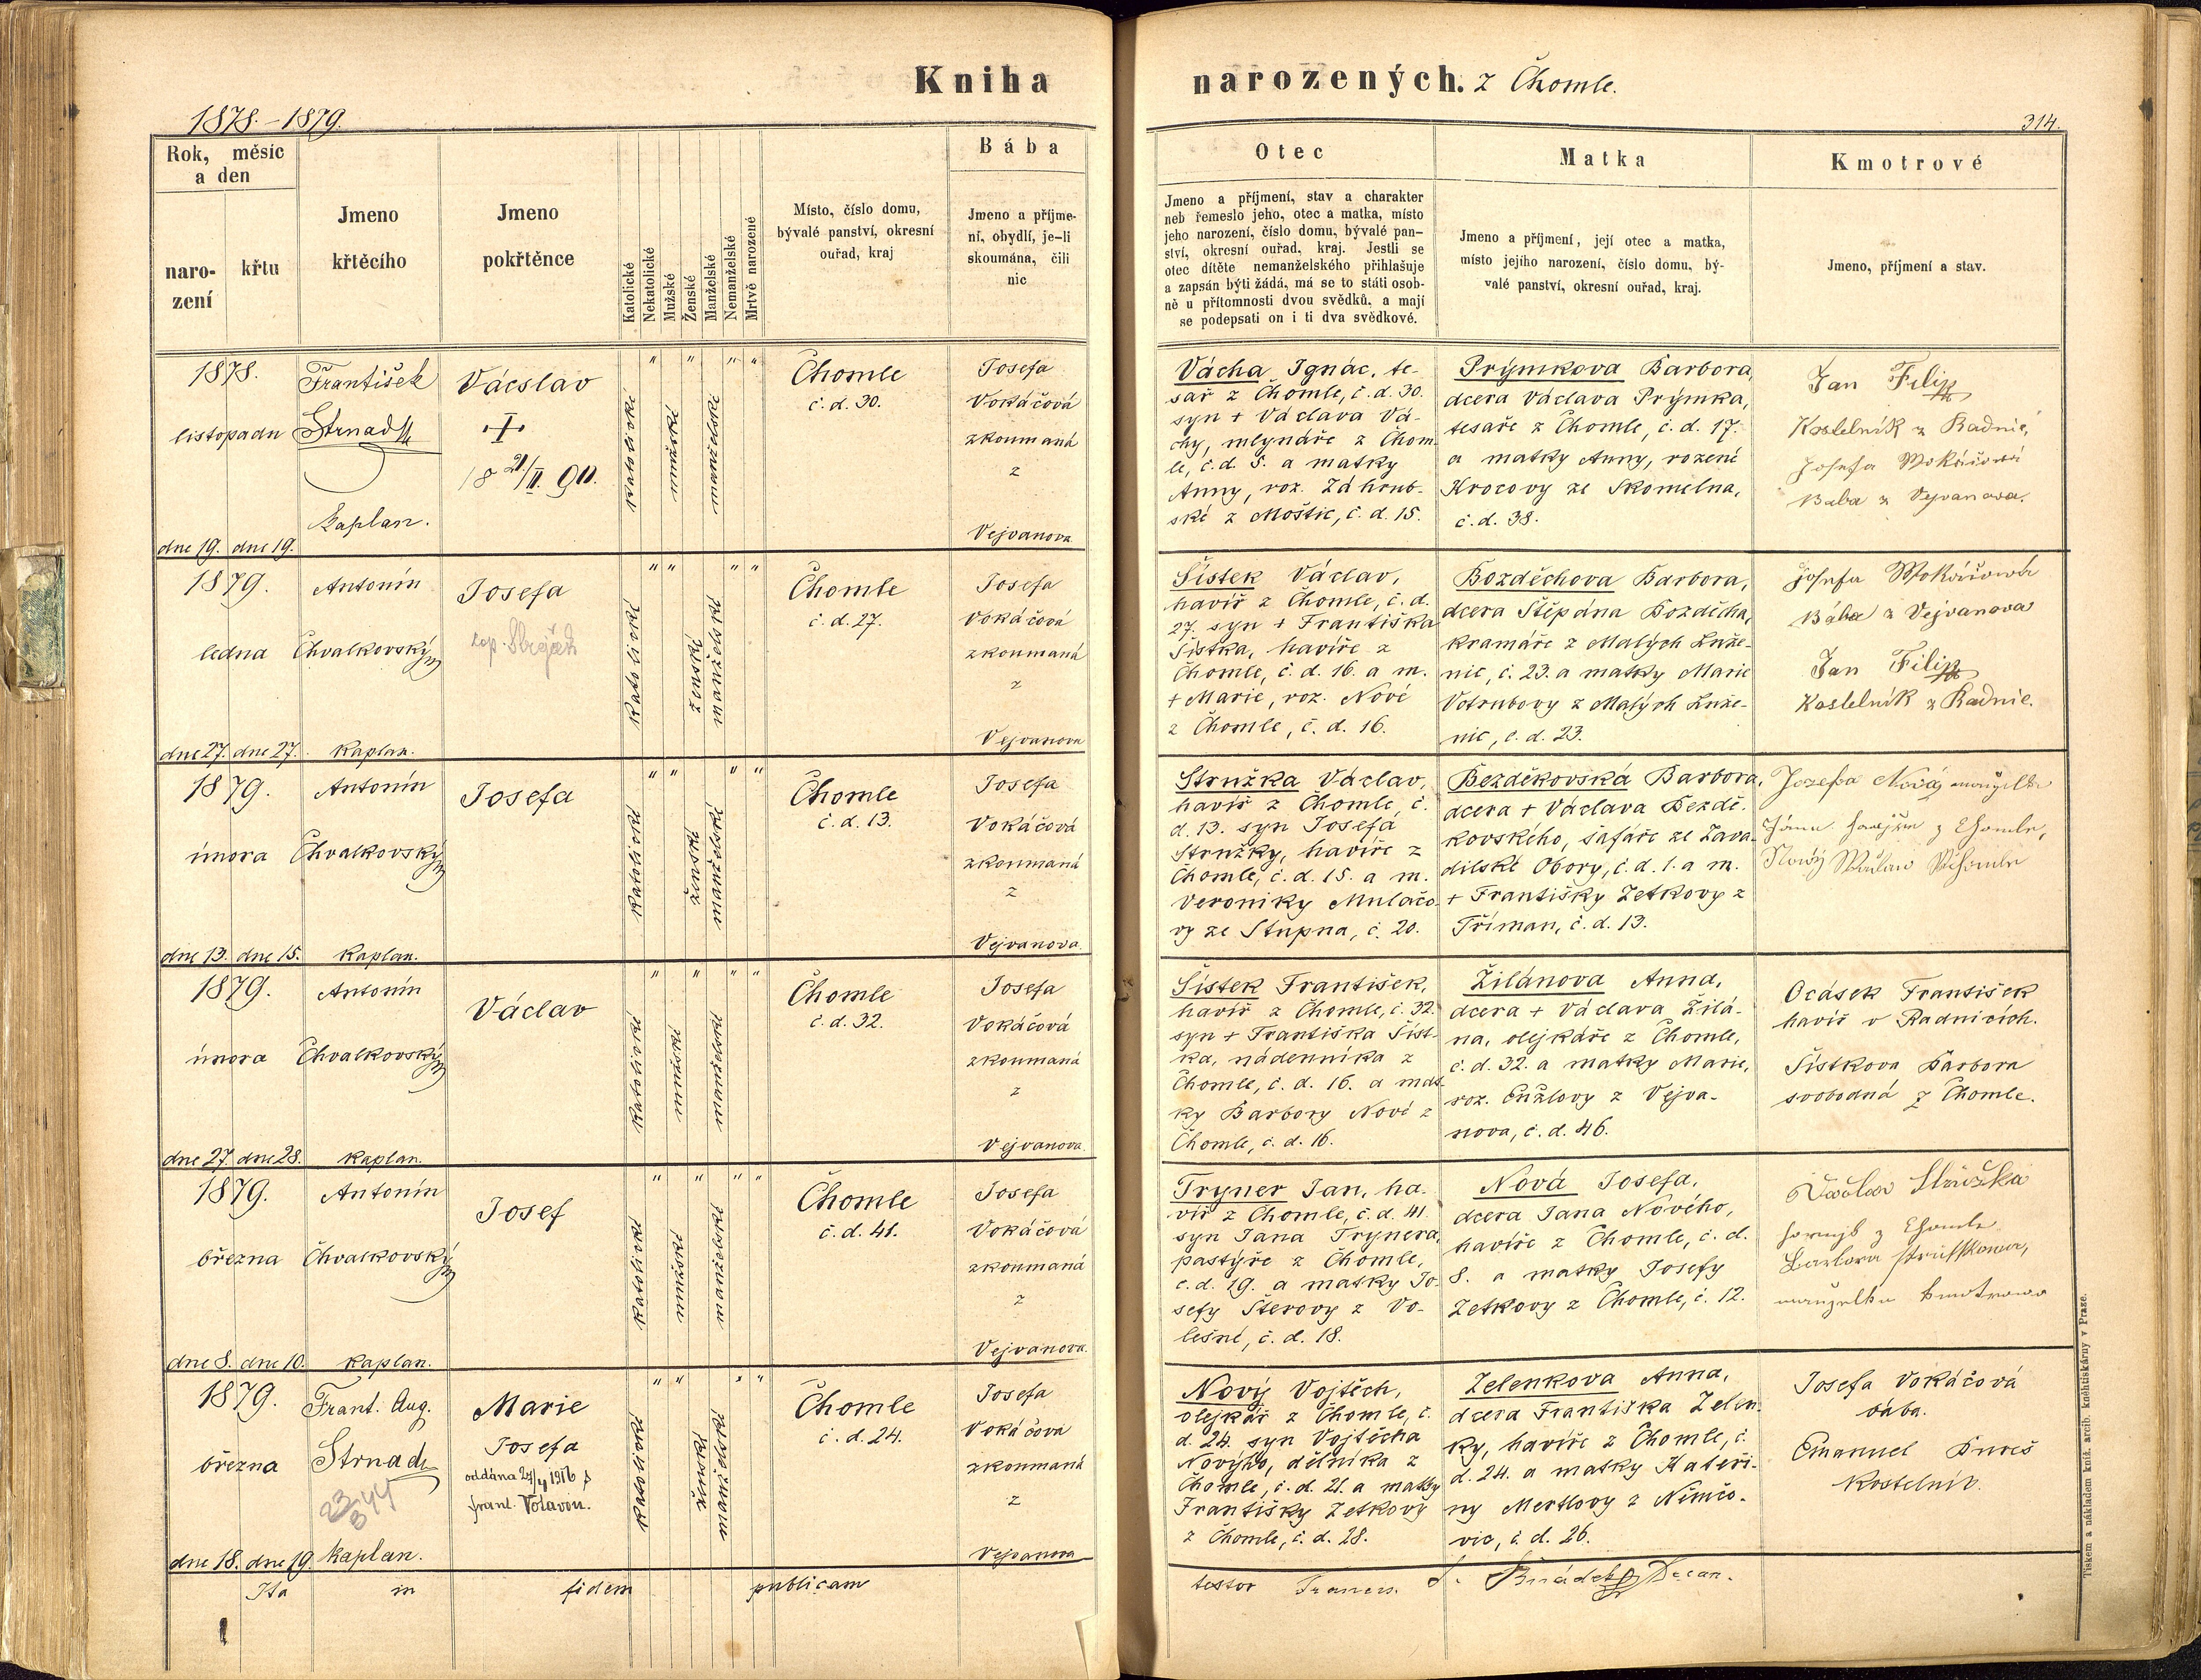 Kniha
narozených. z Chomle.
1878.-1879.
314.
Rok, měsíc
a den
naro-
zení
křtu
Jmeno
křtěcího
Jmeno
pokřtěnce
Katolické
Nekatolické
Mužské
Ženské
Manželské
Nemanželské
Mrtvě narozené
Místo, číslo domu,
bývalé panství, okresní
ouřad, kraj
Bába
Jmeno a příjme-
ní, obydlí, je-li
skoumána, čili
nic
Otec
Jmeno a příjmení, stav a charakter
neb řemeslo jeho, otec a matka, místo
jeho narození, číslo domu, bývalé pan-
ství, okresní ouřad, kraj. Jestli se
otec dítěte nemanželského přihlašuje
a zapsán býti žádá, má se to státi osob-
ně u přítomnosti dvou svědků, a mají
se podepsati on i ti dva svědkové.
Matka
Jmeno a příjmení, její otec a matka,
místo jejího narození, číslo domu, bý-
valé panství, okresní ouřad, kraj.
Kmotrové
Jmeno, příjmení a stav.
1878.
listopadu
dne 19. dne 19.
František
Strnad
Kaplan.
Vácslav
18 21/II. 90.
katolické
mužské
manželské
Chomle
č. d. 30.
Josefa
Vokáčová
zkoumaná
z
Vejvanova
Vácha Ignác, te-
sař z Chomle, č. d. 30.
syn + Václava Vá-
chy, mlynáře z Chom-
le, č. d. 5. a matky
Anny, roz. Záhrub-
ské z Moštic, č. d. 15.
Prýmkova Barbora,
dcera Václava Prýmka,
tesaře z Chomle, č. d. 17.
a matky Anny, rozené
Krocovy ze Skomelna,
č. d. 38.
Jan Filip
Kostelník z Radnic,
Josefa Wokáčowá
Baba z Vejvanova.
1879.
ledna
dne 27. dne 27.
Antonín
Chvalkovský
Kaplan.
Josefa
katolické
ženské
manželské
Chomle
č. d. 27.
Josefa
Vokáčová
zkoumaná
z
Vejvanova
Šístek Václav,
havíř z Chomle, č. d.
27. syn + Františka
Šístka, havíře z
Chomle, č. d. 16. a m.
+ Marie, roz. Nové
z Chomle, č. d. 16.
Bozděchova Barbora,
dcera Štěpána Bozděcha,
kramáře z Malých Luže-
nic, č. 23. a matky Marie
Votrubovy z Malých Luže-
nic, č. d. 23.
Josefa Wokáčowá
Bába z Vejvanova
Jan Filip
Kostelník z Radnic.
1879.
února
dne 13. dne 15.
Antonín
Chvalkovský
Kaplan.
Josefa
katolické
ženské
manželské
Chomle
č. d. 13.
Josefa
Vokáčová
zkoumaná
z
Vejvanova
Stružka Václav,
havíř z Chomle, č.
d. 13. syn Josefa
Stružky, havíře z
Chomle, č. d. 15. a m.
Veroniky Mulačo-
vy ze Stupna, č. 20.
Bezděkovská Barbora,
dcera + Václava Bezdě-
kovského, šafáře ze Zava-
dilské Obory, č. d. 1. a m.
+ Františky Zetkovy z
Tříman, č. d. 13.
Jozefa Nová manželka
z Chomle,
Nový
1879.
února
dne 27. dne 28.
Antonín
Chvalkovský
Kaplan.
Václav
katolické
mužské
manželské
Chomle
č. d. 32.
Josefa
Vokáčová
zkoumaná
z
Vejvanova
Šístek František,
havíř z Chomle, č. 32.
syn + Františka Šíst-
ka, nádenníka z
Chomle, č. d. 16. a mat-
ky Barbory Nové z
Chomle, č. d. 16.
Žilánova Anna,
dcera + Václava Žilá-
na, olejkáře z Chomle,
č. d. 32. a matky Marie,
roz. Cuzlovy z Vejva-
nova, č. d. 46.
Ocásek František
havíř v Radnicích.
Šístkova Barbora
svobodná z Chomle.
1879.
března
dne 8. dne 10.
Antonín
Chvalkovský
Kaplan.
Josef
katolické
mužské
manželské
Chomle
č. d. 41.
Josefa
Vokáčová
zkoumaná
z
Vejvanova
Tryner Jan, ha-
víř z Chomle, č. d. 41.
syn Jana Trynera,
pastýře z Chomle,
č. d. 19. a matky Jo-
sefy Šterovy z Vo-
lešné, č. d. 18.
Nová Josefa,
dcera Jana Nového,
havíře z Chomle, č. d.
8. a matky Josefy
Zetkovy z Chomle, č. 12.
Václav Stružka
z Chomle
Barbora
manželka
1879.
března
dne 18. dne 19.
Frant. Aug.
Strnad
23/8 44
Kaplan.
Marie
Josefa
oddána 24/4 1916 s
Frant. Votavou.
katolické
ženské
manželské
Chomle
č. d. 24.
Josefa
Vokáčova
zkoumaná
z
Vejvanova
Nový Vojtěch,
olejkář z Chomle, č.
d. 24. syn Vojtěcha
Nového, dělníka z
Chomle, č. d. 21. a matky
Františky Zetkovy
z Chomle, č. d. 28.
Zelenkova Anna,
dcera Františka Zelen-
ky, havíře z Chomle, č.
d. 24. a matky Kateři-
ny Mertlovy z Němčo-
vic, č. d. 26.
Josefa Vokáčová
bába.
Emanuel Bureš
Kostelník.
Ita in fidem publicam
testor Francis.
Tiskem a nákladem kníž. arcib. knihtiskárny v Praze.